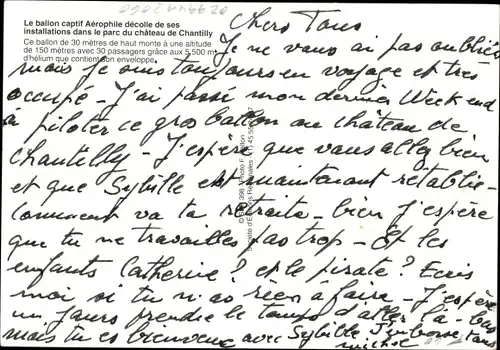 Le ballon captif Aérophile décolle de ses
installations dans le parc du château de Chantilly
Ce ballon de 30 mètres de haut monte à une altitude
de 150 mètres avec 30 passagers grâce aux 5.500 m³
d'hélium que contient son enveloppe.
Chers Tous
Je ne vous ai pas oubliés
mais je suis toujours en voyage et très
occupé - J'ai passé mon dernier Week end
à piloter ce gros ballon au château de
Chantilly - J'espère que vous allez bien
et que Sybille est maintenant rétablie -
Comment va ta retraite - bien j'espère
que tu ne travailles pas trop - Et les
enfants Catherine? et le pirate? Ecris
moi si tu n'as rien à faire - J'espère
un jour prendre le temps d'aller là-bas
mais tu es bienvenu avec Sybille
michel